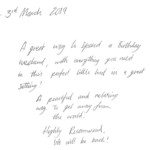 3rd March 2019
A great way to spend a birthday
weekend, with everything you need
in this perfect little hub in a great
setting!
A peaceful and relaxing
way to get away from
the world.
Highly Recommend,
We will be back!